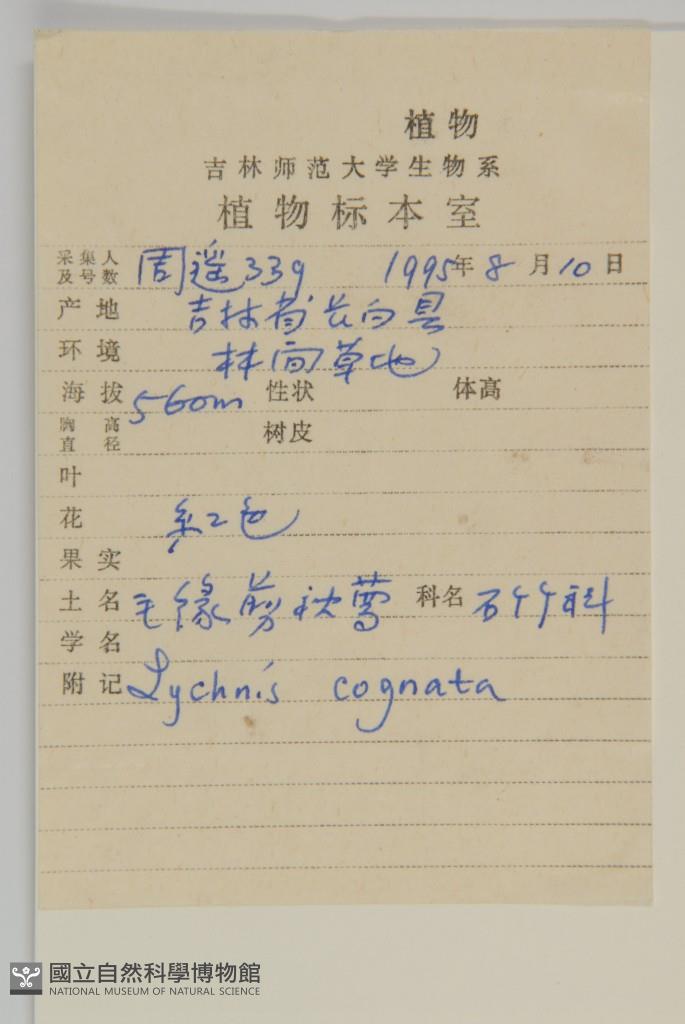 植物
吉林师范大学生物系
植物标本室
采集人及号数 周遥339 1995年8月10日
产地 吉林省长白县
环境 林间草地
海拔 560m 性状 体高
胸高直径 树皮
叶
花 红色
果实
土名 毛缘剪秋 科名 石竹科
学名
附记 Lychnis cognata
國立自然科學博物館
NATIONAL MUSEUM OF NATURAL SCIENCE